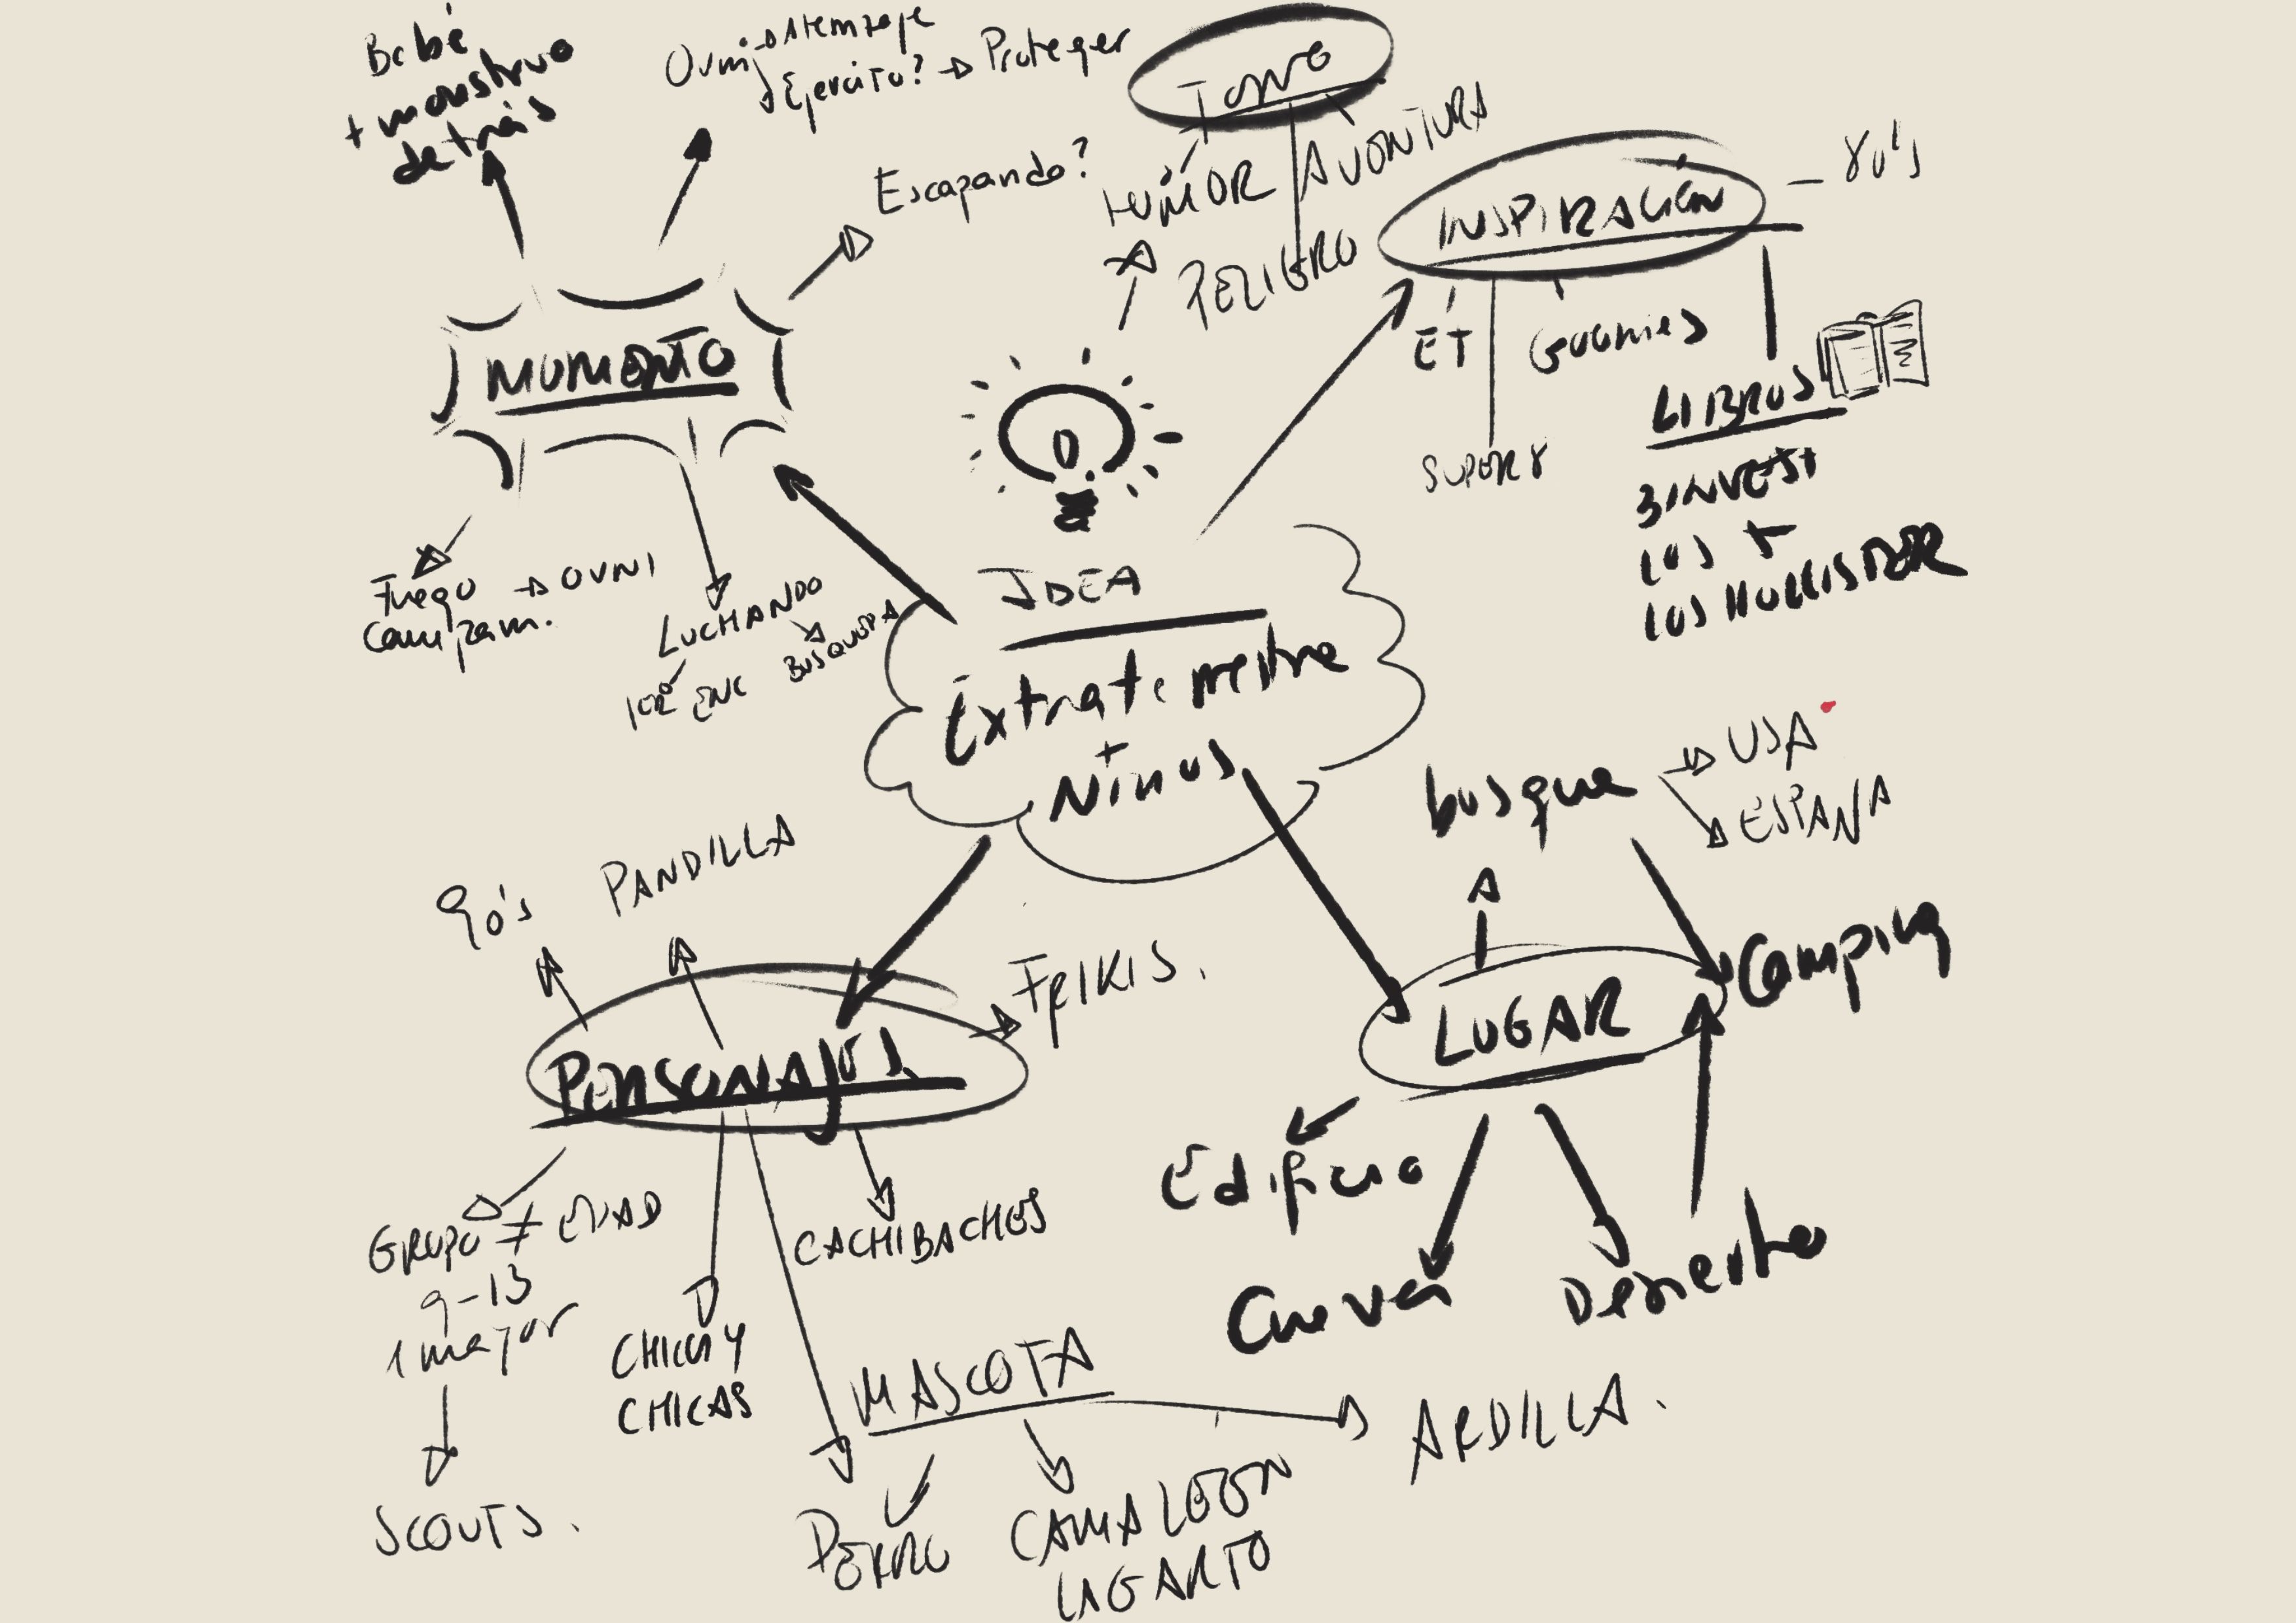 Bebé
+ monstruo
detrás
Ovni → Aterrizaje
Ejercito? → Proteger
Escapando?
MOMENTO
Fuego → OVNI
Campam.
LUCHANDO
1ER ENC
BUSQUEDA
TONO
HUMOR
AVENTURA
PELIGRO
INSPIRACIÓN
- 80's
ET
GOONIES
SUPER 8
LIBROS
3 INVEST
LOS +
LOS HOLLISTER
IDEA
Extraterrestre
+
Niños
90's
PANDILLA
FRIKIS.
PERSONAJES
GRUPO ≠ EDAD
9-13
1 mayor
SCOUTS.
CHICOS Y
CHICAS
CACHIBACHES
MASCOTA
PERRO
CAMALEON
LAGARTO
ARDILLA.
bosque
USA
ESPAÑA
Camping
LUGAR
Edificio
Cueva
Desierto